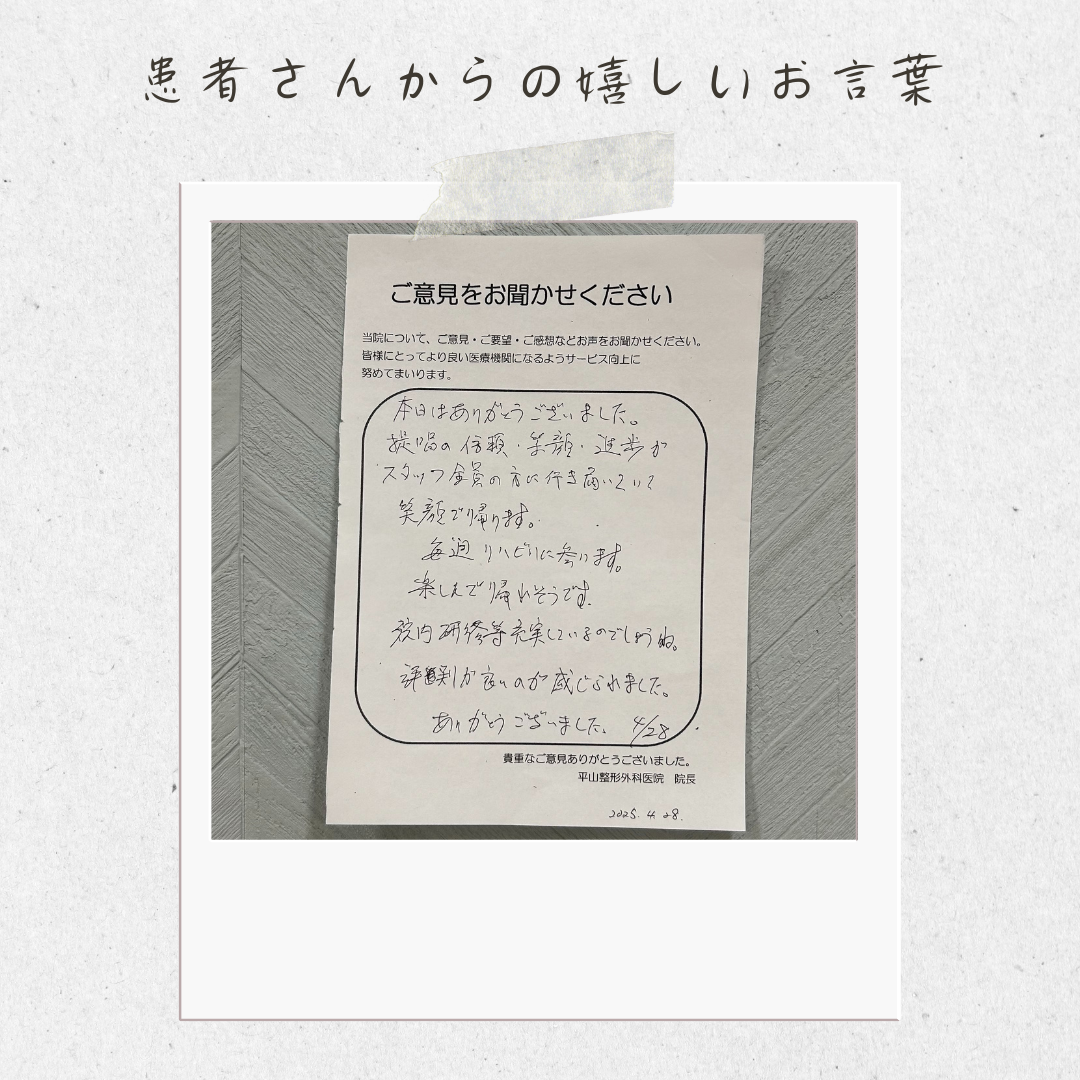 患者さんからの嬉しいお言葉
ご意見をお聞かせください
当院について、ご意見・ご要望・ご感想などお声をお聞かせください。
皆様にとってより良い医療機関になるようサービス向上に
努めてまいります。
本日はありがとうございました。
提唱の信頼・笑顔・進歩が
スタッフ全員の方に行き届いていて
笑顔で帰ります。
毎週リハビリに参ります。
楽しんで帰れそうです。
院内研修等充実しているのでしょうね。
評判が良いのが感じられました。
ありがとうございました。 4/28
貴重なご意見ありがとうございました。
平山整形外科医院 院長
2025. 4. 28.